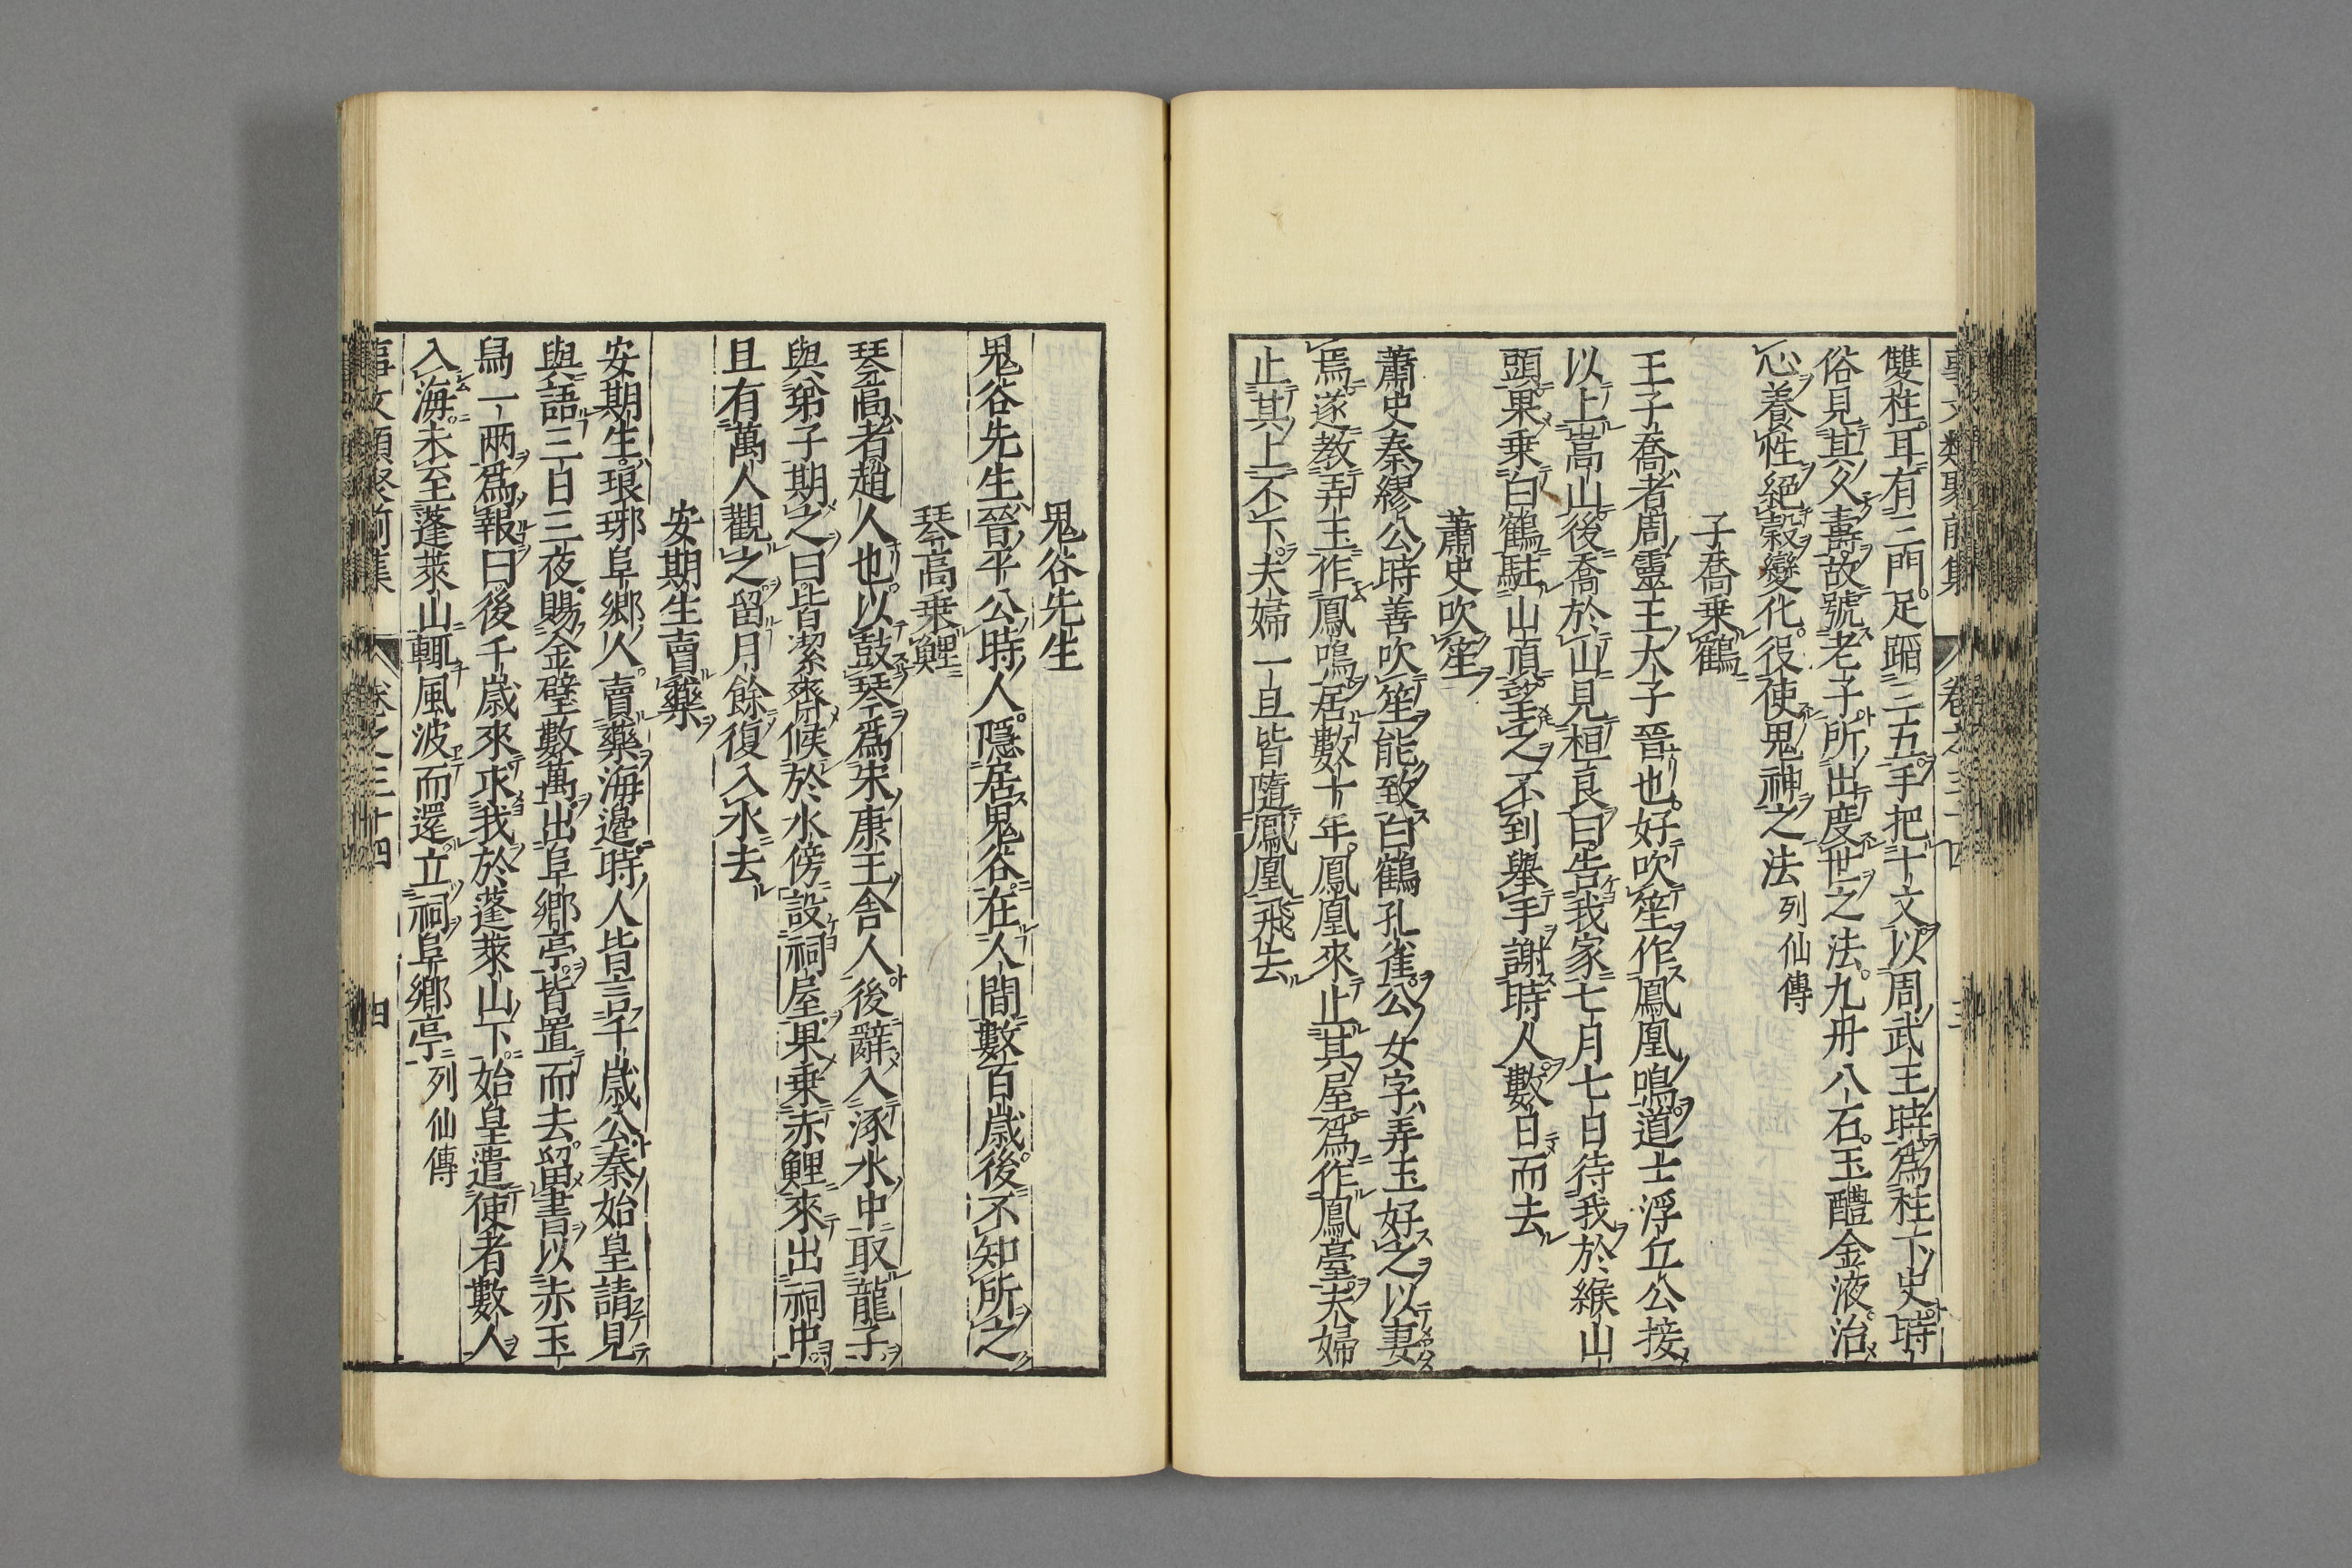 事文類聚前集 卷之三十四 三
雙柱耳有三門足蹈三五手把十文以周武王時爲柱下史時
俗見其久壽故號老子所出度世之法九丹八石玉醴金液治
心養性絕穀變化役使鬼神之法列仙傳
子喬乗鶴
王子喬者周靈王太子晉也好吹笙作鳳凰鳴道士浮丘公接
以上嵩山後喬於山見桓良曰告我家七月七日待我於緱山
頭果乗白鶴駐山頂望之不到舉手謝時人數日而去
蕭史吹笙
蕭史秦繆公時善吹笙能致白鶴孔雀公女字弄玉好之以妻
焉遂教弄玉作鳳鳴居數十年鳳凰來止其屋爲作鳳臺夫婦
止其上不下夫婦一旦皆隨鳳凰飛去
鬼谷先生
鬼谷先生晉平公時人隱居鬼谷在人間數百歲後不知所之
琴高乗鯉
琴高者趙人也以鼓琴爲宋康王舍人後辭入涿水中取龍子
與弟子期之曰皆潔齊候於水傍設祠屋果乗赤鯉來出祠中
且有萬人觀之留月餘復入水去
安期生賣藥
安期生琅琊阜郷人賣藥海邊時人皆言千歲公秦始皇請見
與語三日三夜賜金璧數萬出阜郷亭皆置而去留書以赤玉
舄一兩爲報曰後千歲來求我於蓬萊山下始皇遣使者數人
入海未至蓬萊山輒風波而還立祠阜郷亭列仙傳
事文類聚前集 卷之三十四 四